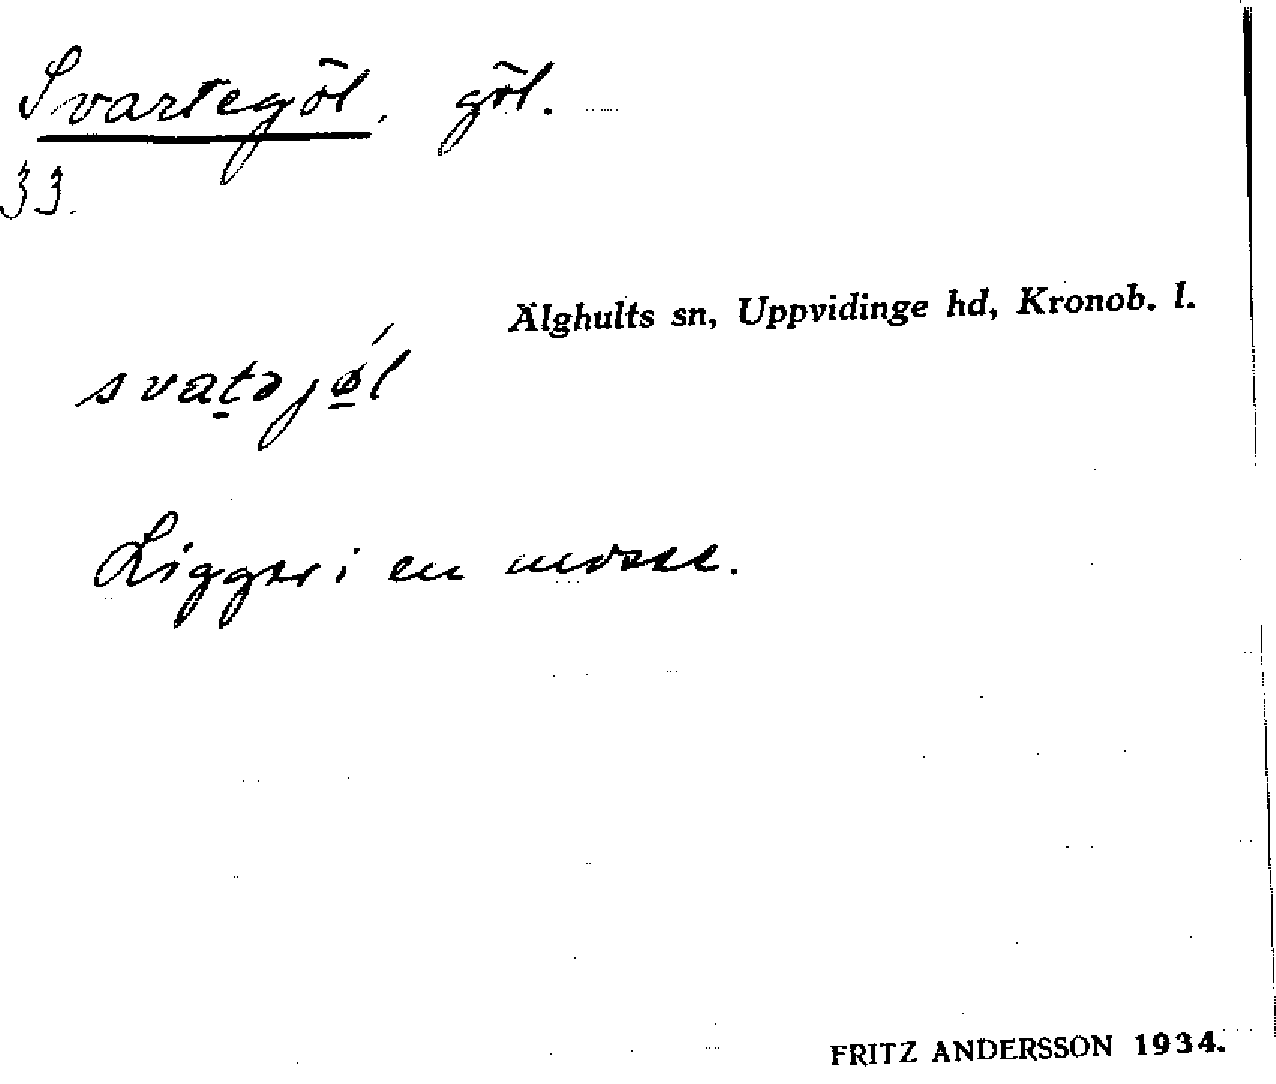 Svartegöl, göl.
33.
Älghults sn, Uppvidinge hd, Kronob. l.
svat̲əjǿ̲l
Ligger i en mosse.
FRITZ ANDERSSON 1934.